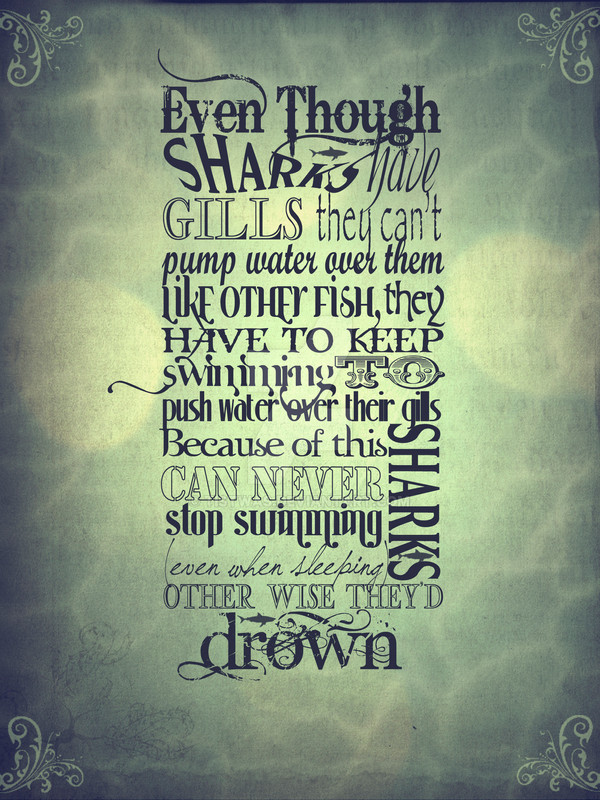 Even Though
SHARKS have
GILLS they can't
pump water over them
LIKE OTHER FISH, they
HAVE TO KEEP
swimming TO
push water over their gills
Because of this
SHARKS
CAN NEVER
stop swimming
(even when sleeping)
OTHER WISE THEY'D
drown